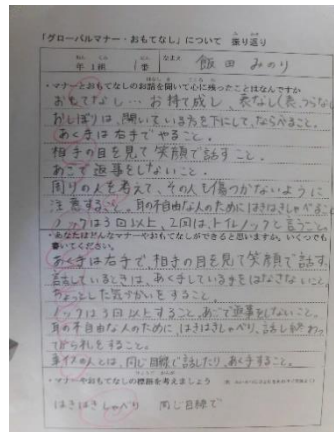 「グローバルマナー・おもてなし」について 振り返り
年 1組 1番 なまえ 飯田 みのり
・マナーとおもてなしのお話を聞いて心に残ったことはなんですか
おもてなし…お持て成し、表なし(表、うらなし
おしぼりは、開いている方を下にして、ならべること。
あく手は右手でやること。
相手の目を見て笑顔で話すこと。
あごで返事をしないこと。
周りの人を考えて、その人も傷つかないように
注意すること。耳の不自由な人のためにはきはきしゃべること
ノックは3回以上、2回は、トイレノックと言うこと。
・あなたはどんなマナーやおもてなしができると思いますか。いくつでも
書いてください。
あく手は右手で、相手の目を見て笑顔で話す。
話をしているときは、あく手している手をはなさないこと。
ちょっとした気づかいをすること。
ノックは3回以上すること。あごで返事をしないこと。
耳の不自由な人のために、はきはきしゃべり、話し終わっ
てからおれをすること。
車イスの人とは、同じ目線で話したり、あく手すること。
・マナーやおもてなしの標語を考えましょう
はきはきしゃべり 同じ目線で